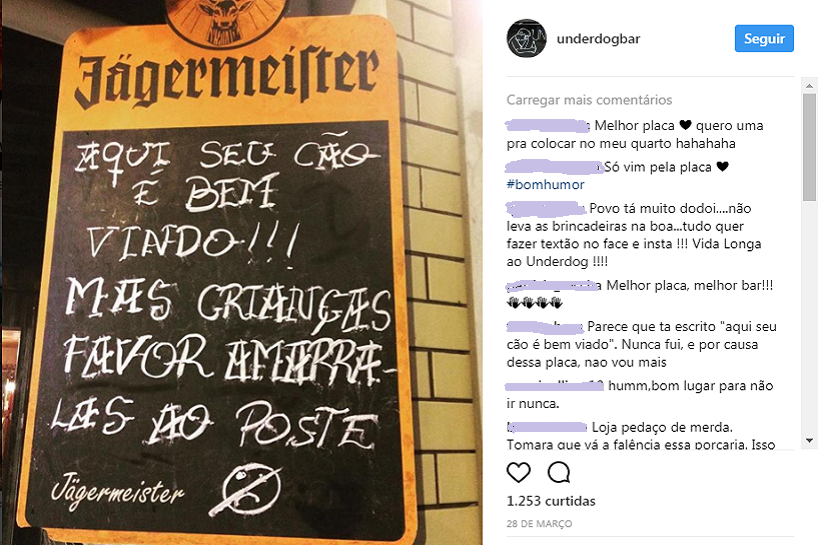 Jägermeister
AQUI SEU CÃO
É BEM
VINDO!!!
MAS CRIANÇAS
FAVOR AMARRA-
LAS AO POSTE
Jägermeister
underdogbar
Seguir
Carregar mais comentários
Melhor placa ♥ quero uma
pra colocar no meu quarto hahahaha
Só vim pela placa ♥
#bomhumor
Povo tá muito dodoi....não
leva as brincadeiras na boa...tudo quer
fazer textão no face e insta !!! Vida Longa
ao Underdog !!!!
Melhor placa, melhor bar!!!
Parece que ta escrito "aqui seu
cão é bem viado". Nunca fui, e por causa
dessa placa, nao vou mais
humm,bom lugar para não
ir nunca.
Loja pedaço de merda.
Tomara que vá a falência essa porcaria. Isso
1.253 curtidas
28 DE MARÇO